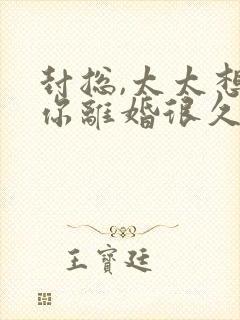 封総,太太想
你離婚很久
王寶廷